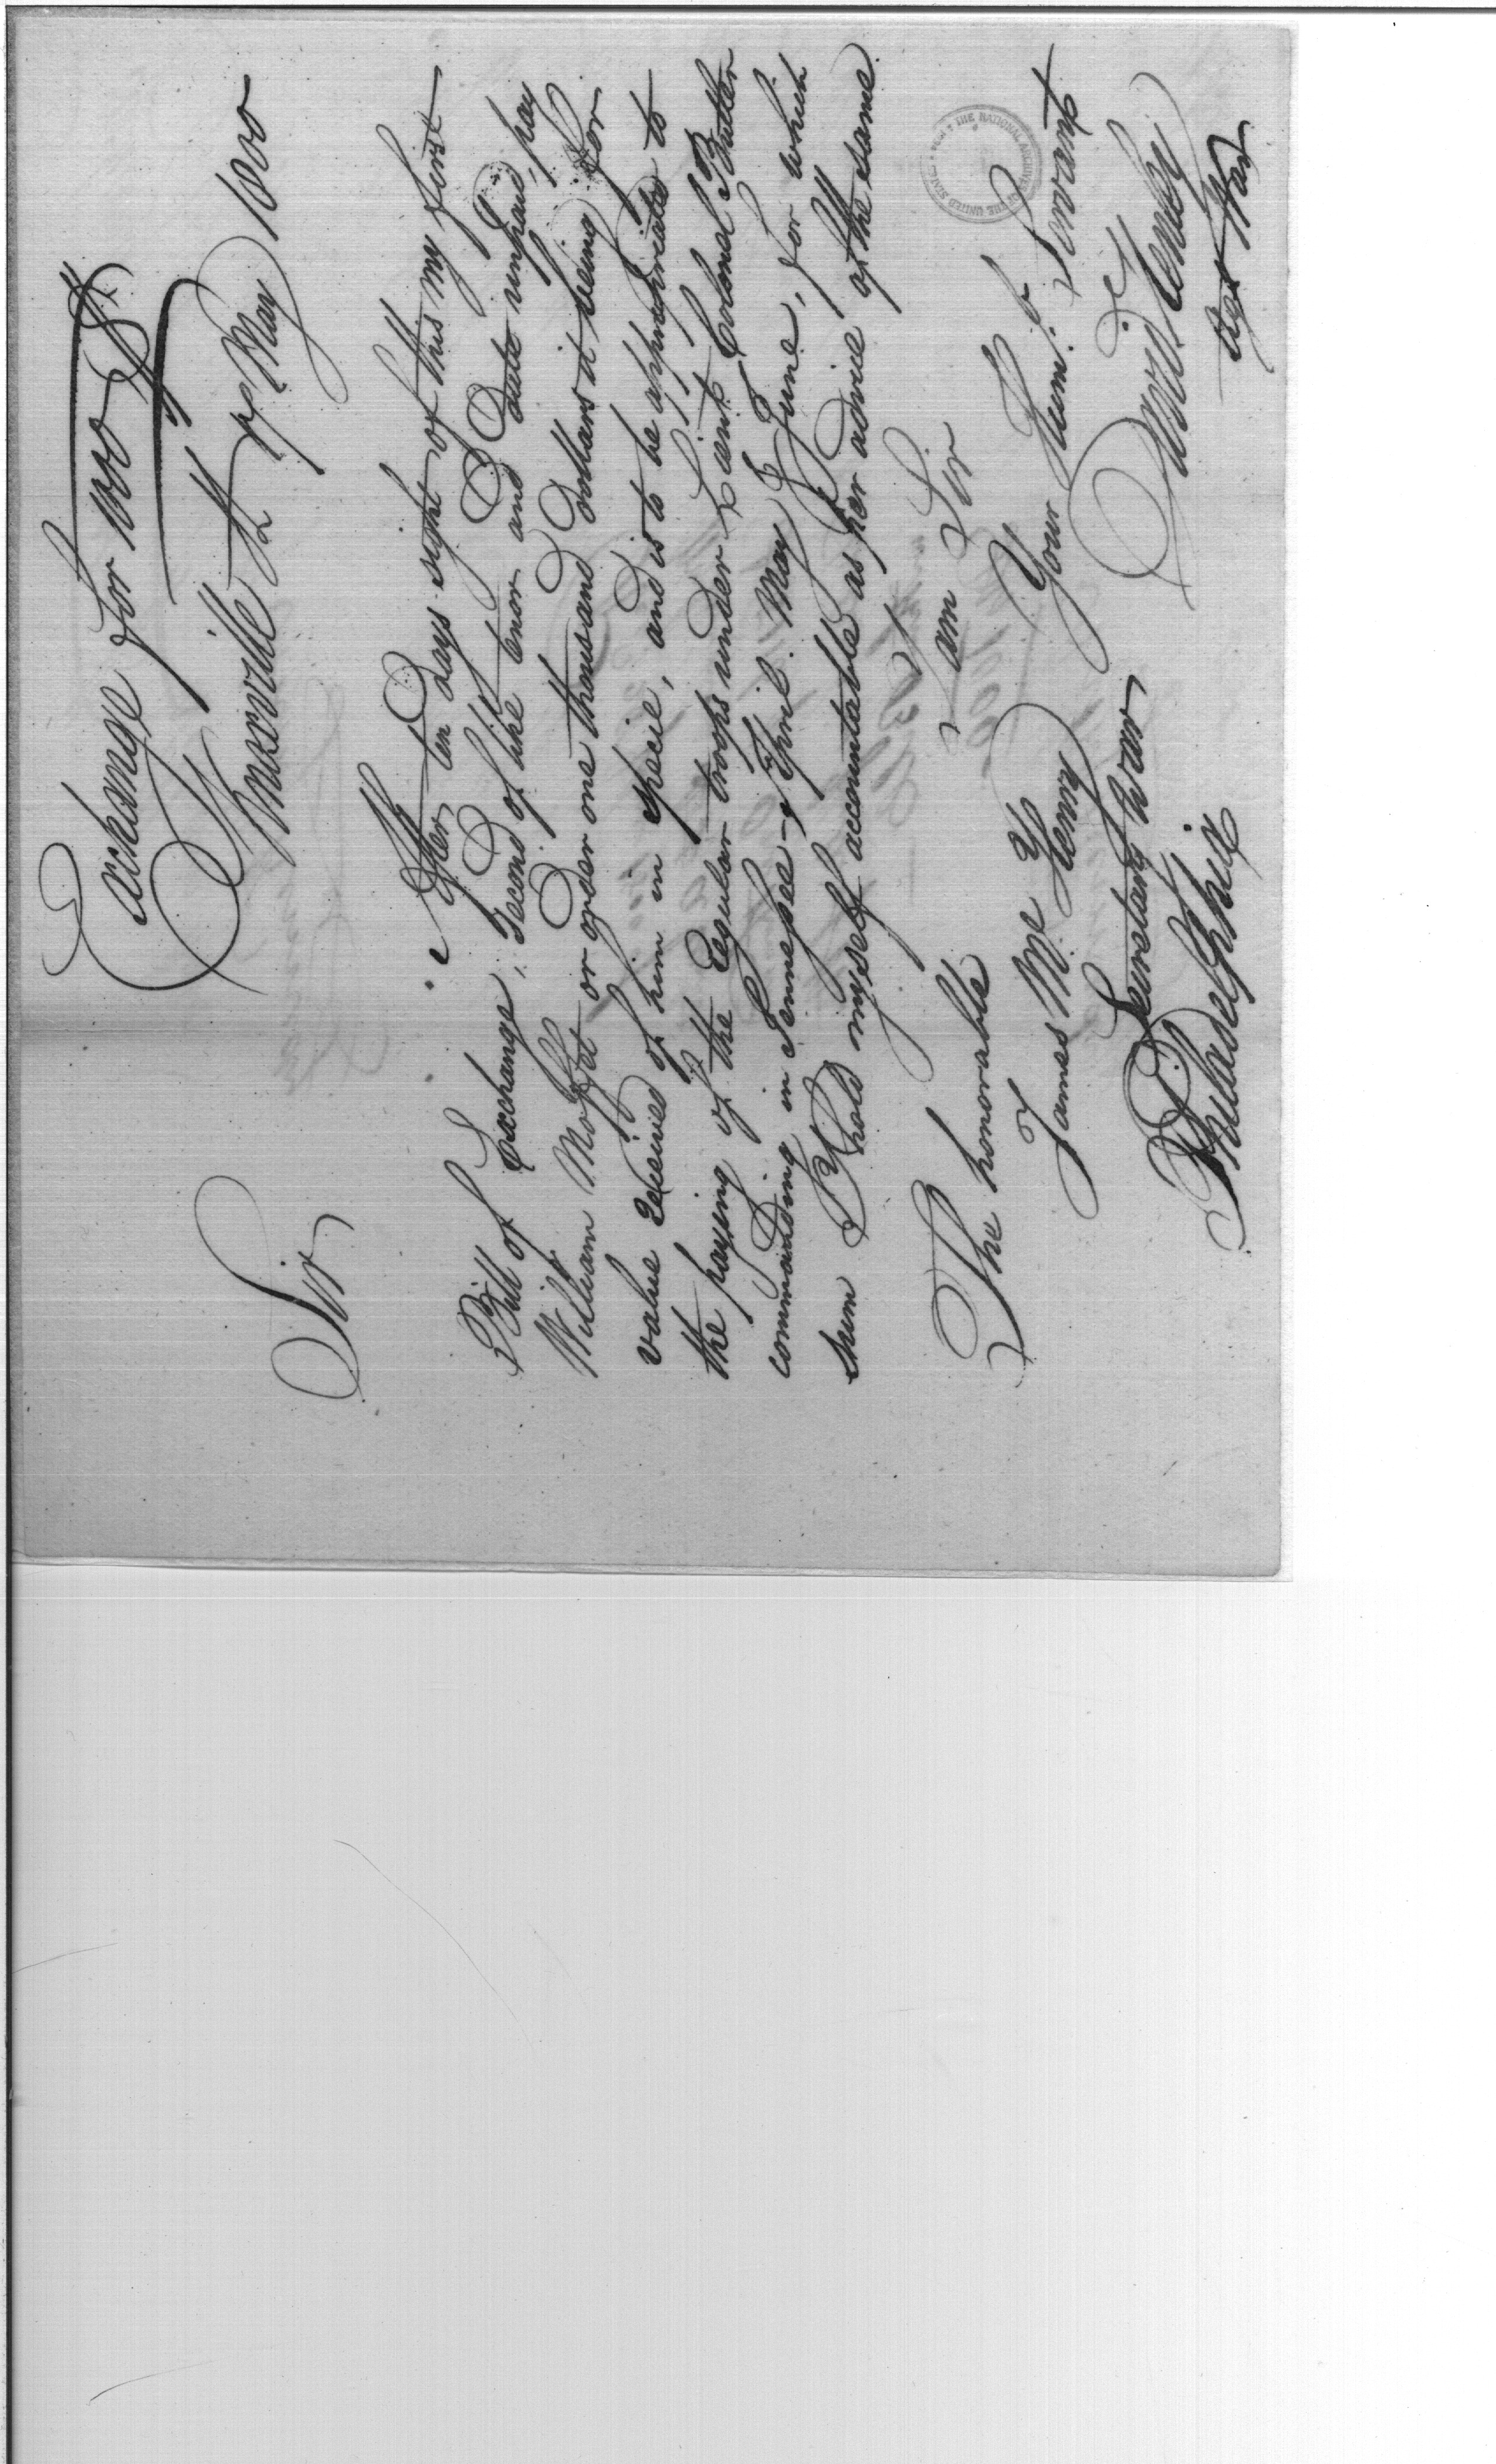 Exchange for 1000 Drs
Knoxville 17 May 1800
Sir
After ten days sight of this my first
Bill of Exchange, Second of like tenor and Date unpaid, pay
William Moffet or order one thousand Dollars it being for
value Received of him in specie, and is to be appropriated to
the paying of the Regular troops under Lieut Colonel Butler
commanding in Tennessee - April. May & June, for which
sum I hold myself accountable as per advice of the same
I am Sir
The honorable Your Hum. Servant
James Mc Henry David Henley
Secretary War Agt War
Philadelphia
THE NATIONAL ARCHIVES OF THE UNITED STATES